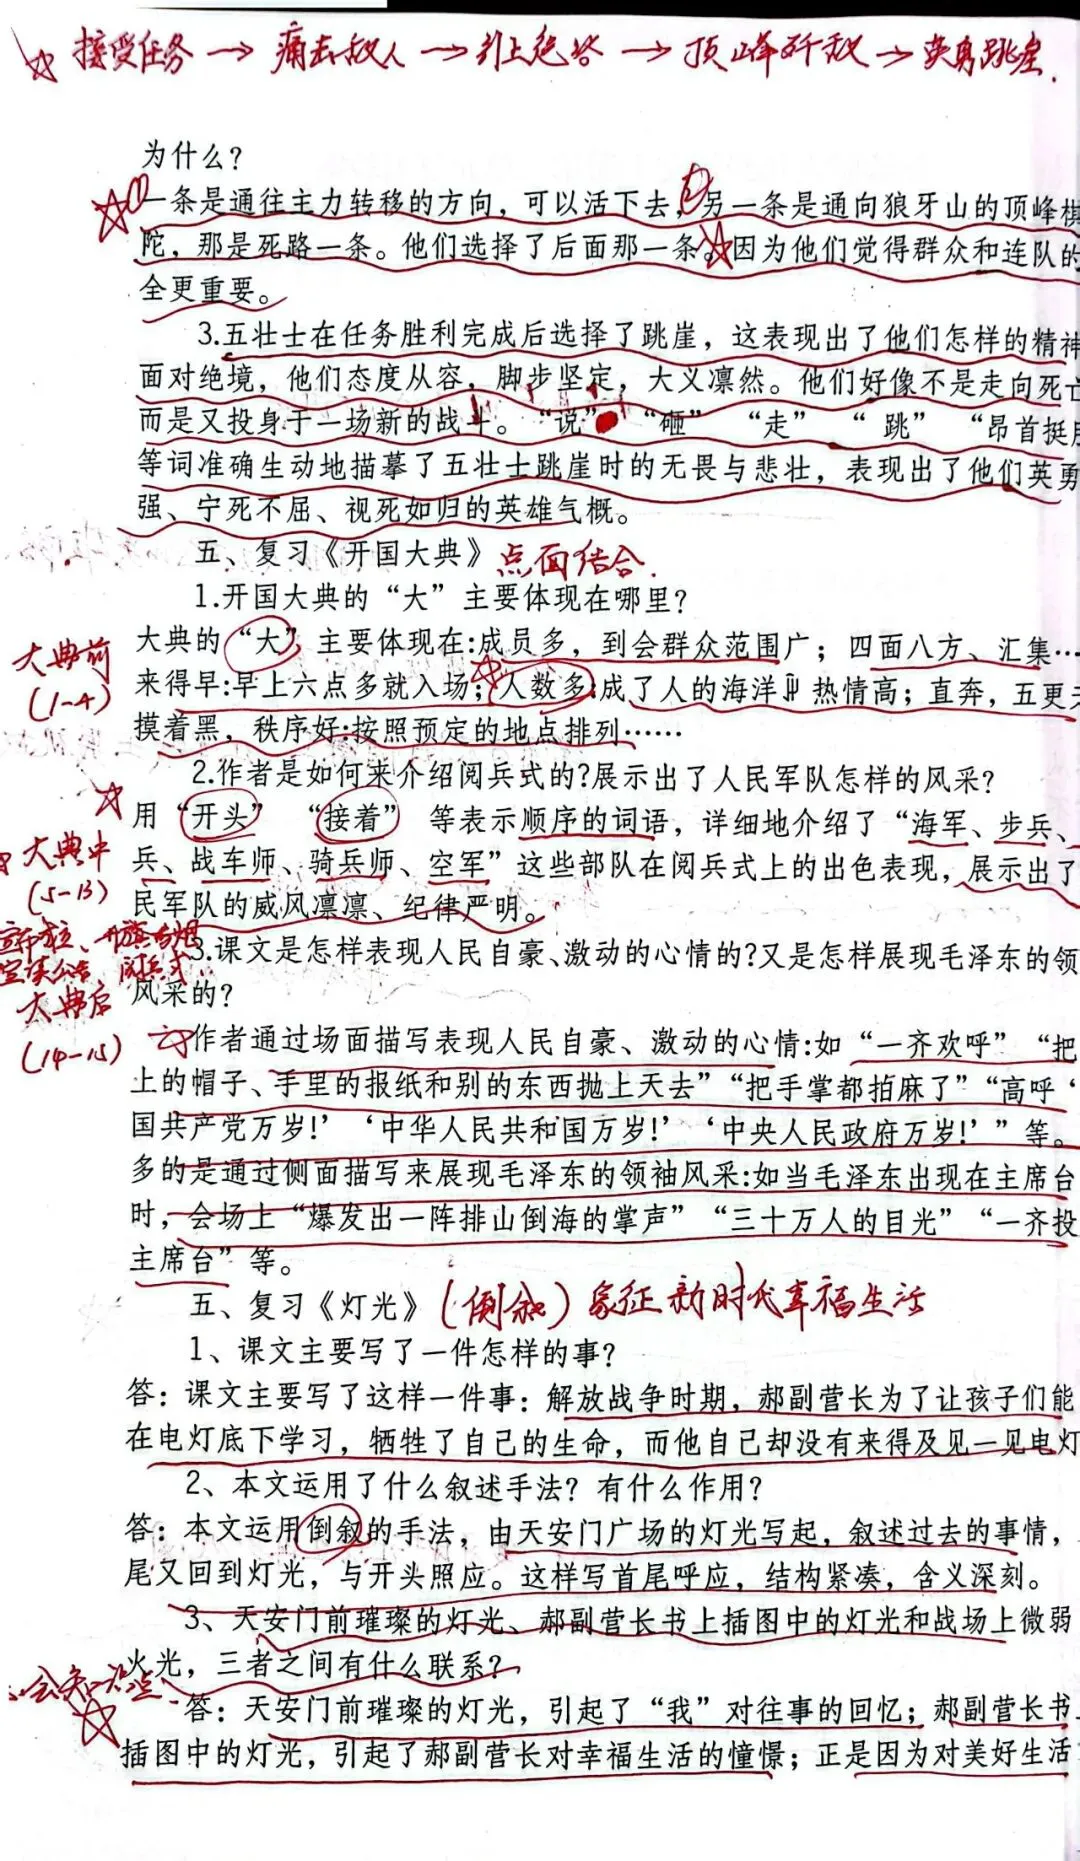 接受任务→痛击敌人→引上绝路→顶峰歼敌→英勇跳崖.
为什么?
①一条是通往主力转移的方向，可以活下去，②另一条是通向狼牙山的顶峰棋
陀，那是死路一条。他们选择了后面那一条。因为他们觉得群众和连队的
全更重要。
3.五壮士在任务胜利完成后选择了跳崖，这表现出了他们怎样的精神
面对绝境，他们态度从容，脚步坚定，大义凛然。他们好像不是走向死亡
而是又投身于一场新的战斗。“说” “砸” “走” “跳” “昂首挺胸
等词准确生动地描摹了五壮士跳崖时的无畏与悲壮，表现出了他们英勇
强、宁死不屈、视死如归的英雄气概。
五、复习《开国大典》 点面结合.
1.开国大典的“大”主要体现在哪里?
大典前
(1-4)
大典的“大”主要体现在:成员多，到会群众范围广；四面八方、汇集…
来得早:早上六点多就入场；人数多:成了人的海洋 热情高；直奔，五更天
摸着黑，秩序好:按照预定的地点排列……
2.作者是如何来介绍阅兵式的?展示出了人民军队怎样的风采?
大典中
(5-13)
用“开头” “接着” 等表示顺序的词语，详细地介绍了“海军、步兵、
兵、战车师、骑兵师、空军”这些部队在阅兵式上的出色表现，展示出了
民军队的威风凛凛、纪律严明。
宣读公告 阅兵式
大典后
(14-15)
3.课文是怎样表现人民自豪、激动的心情的?又是怎样展现毛泽东的领
风采的?
作者通过场面描写表现人民自豪、激动的心情:如“一齐欢呼”“把
上的帽子、手里的报纸和别的东西抛上天去”“把手掌都拍麻了”“高呼‘
国共产党万岁!’‘中华人民共和国万岁!’‘中央人民政府万岁!’”等。
多的是通过侧面描写来展现毛泽东的领袖风采:如当毛泽东出现在主席台
时，会场上“爆发出一阵排山倒海的掌声”“三十万人的目光”“一齐投
主席台”等。
五、复习《灯光》 (倒叙) 象征新时代幸福生活
1、课文主要写了一件怎样的事?
答：课文主要写了这样一件事：解放战争时期，郝副营长为了让孩子们能
在电灯底下学习，牺牲了自己的生命，而他自己却没有来得及见一见电灯
2、本文运用了什么叙述手法？有什么作用?
答：本文运用倒叙的手法，由天安门广场的灯光写起，叙述过去的事情，
尾又回到灯光，与开头照应。这样写首尾呼应，结构紧凑，含义深刻。
3、天安门前璀璨的灯光、郝副营长书上插图中的灯光和战场上微弱
火光，三者之间有什么联系?
答：天安门前璀璨的灯光，引起了“我”对往事的回忆；郝副营长书
插图中的灯光，引起了郝副营长对幸福生活的憧憬；正是因为对美好生活